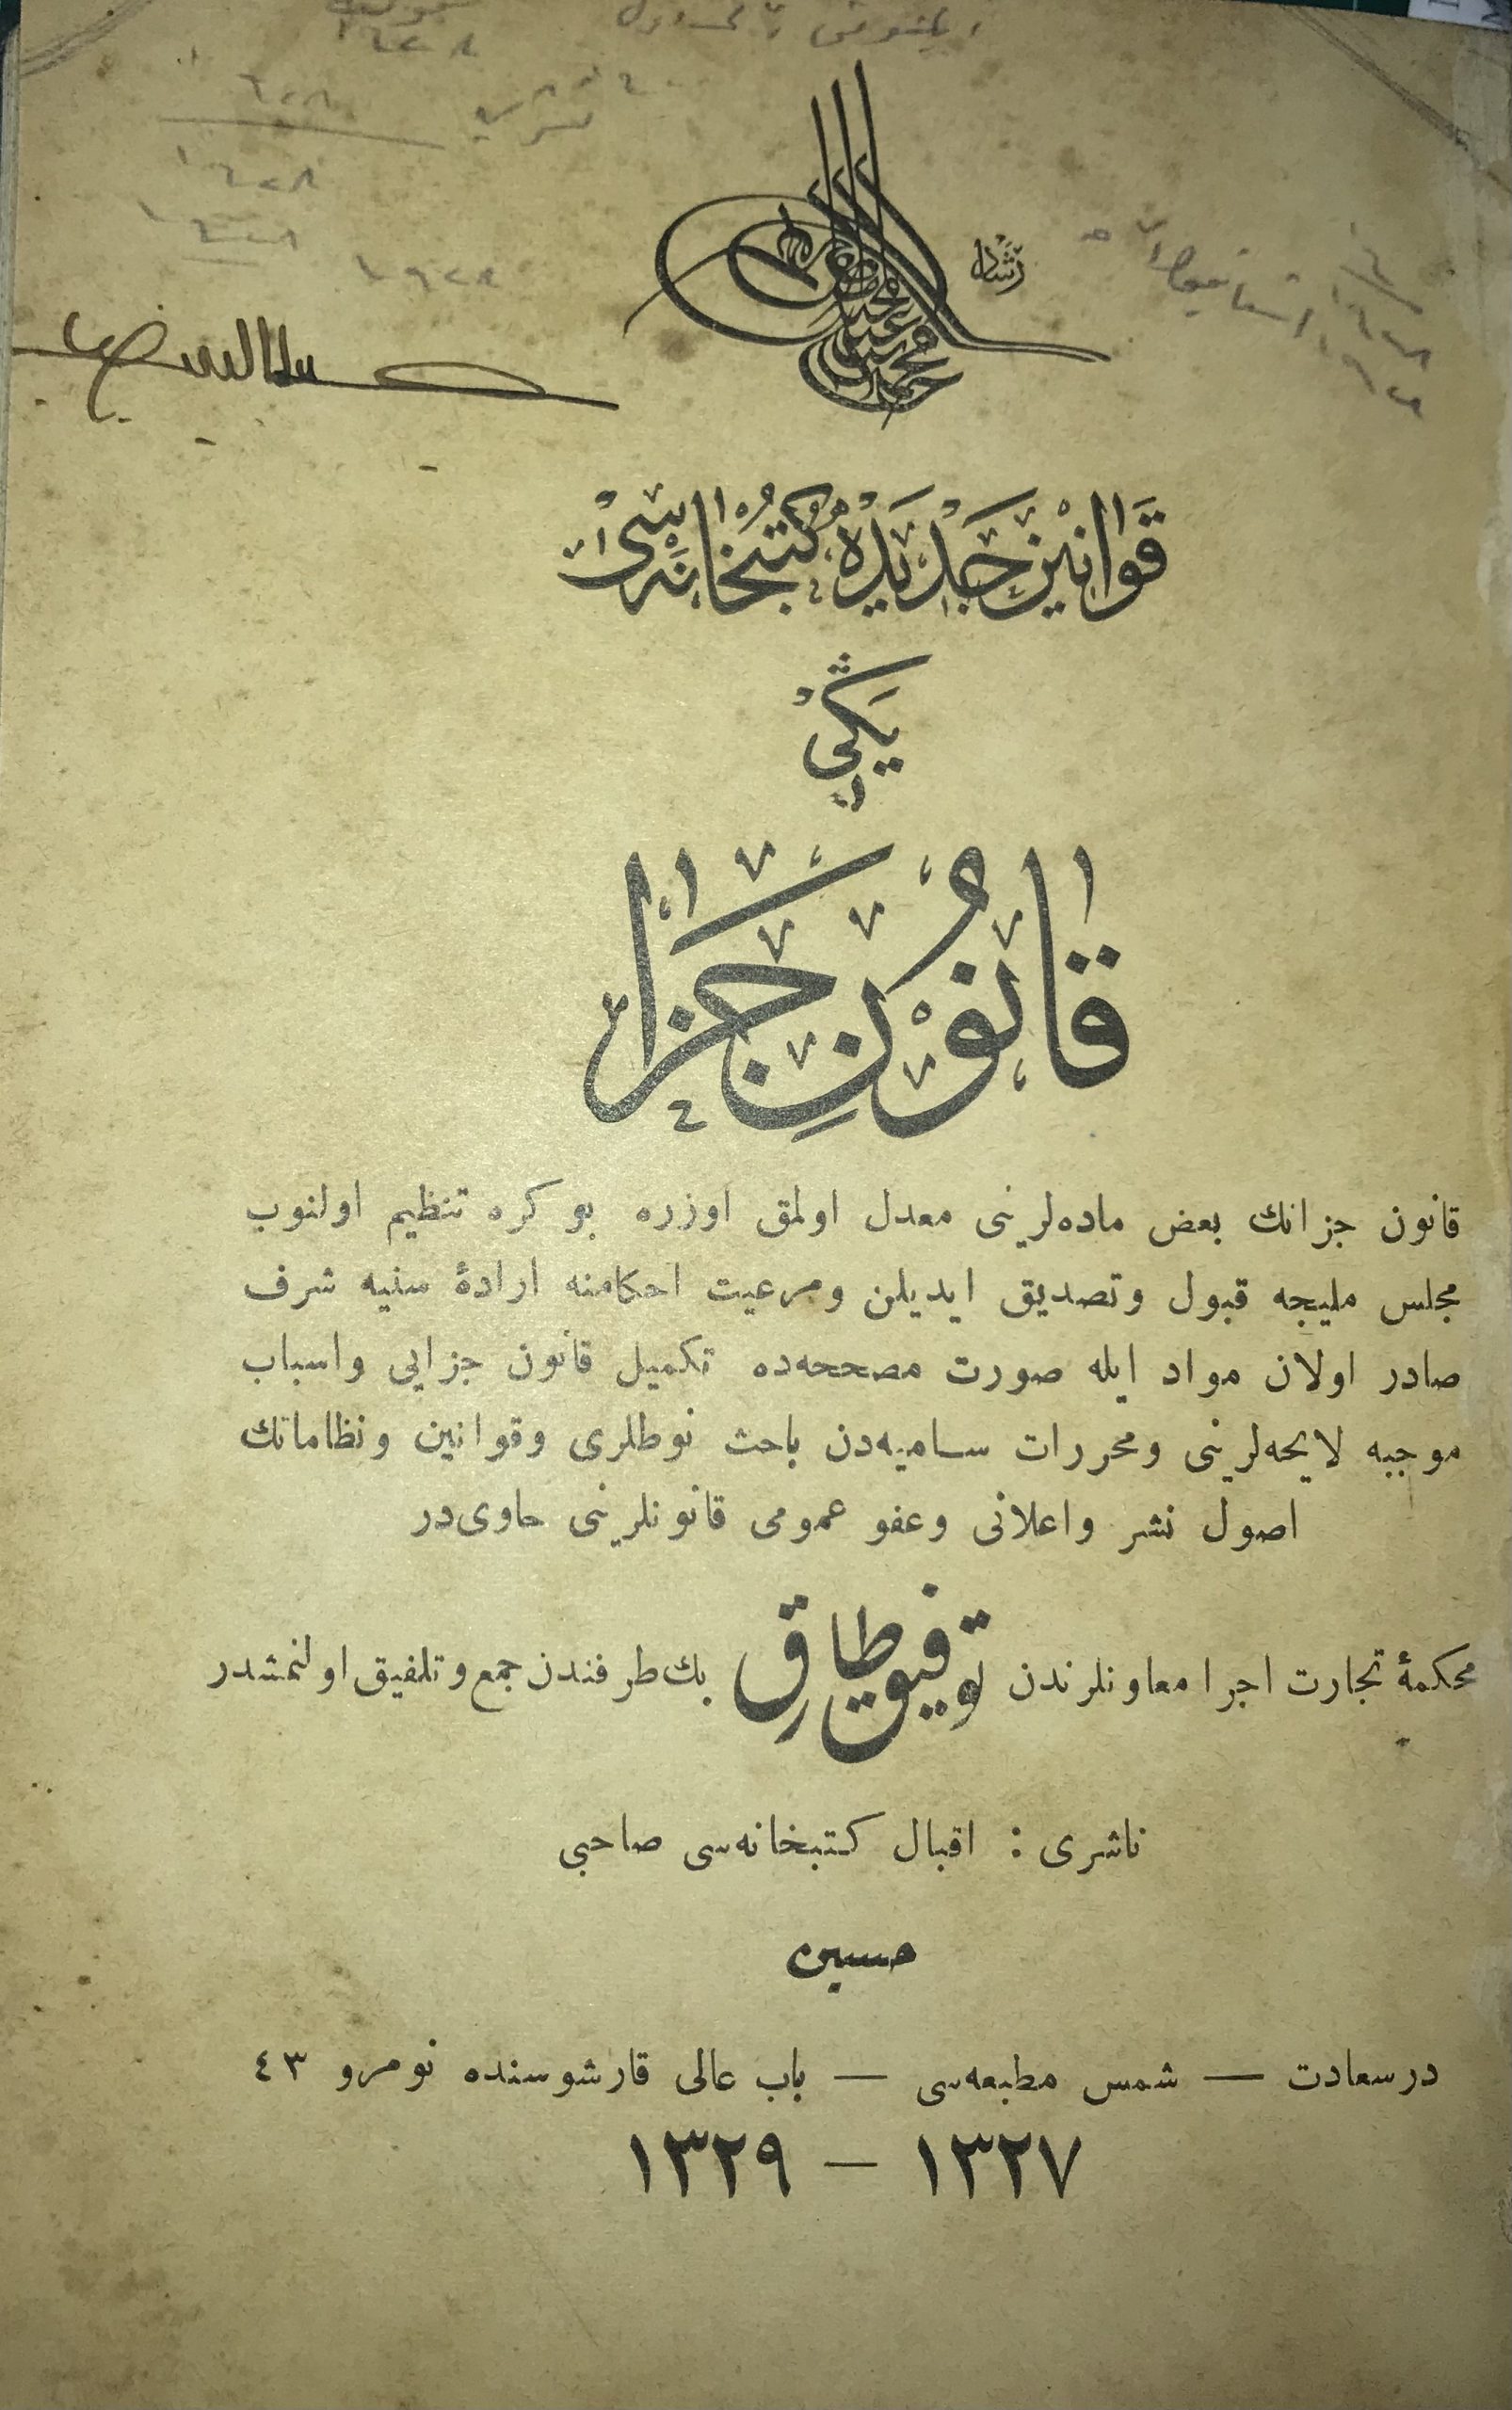 رشاد
قوانین جدیده کتبخانه‌سی
یکی
قانون جزا
قانون جزانك بعض ماده‌لرینی معدل اولمق اوزره بو کره تنظیم اولنوب
مجلس ملیجه قبول وتصدیق ایدیلن ومرعیت احکامنه ارادهٔ سنیه شرف
صادر اولان مواد ایله صورت مصححه‌ده تکمیل قانون جزایی واسباب
موجبه لایحه‌لرینی ومحررات سامیه‌دن باحث نوطلری وقوانین ونظاماتك
اصول نشر واعلانی وعفو عمومی قانونلرینی حاوی‌در
محکمهٔ تجارت اجرا معاونلرندن توفیق طارق بك طرفندن جمع وتلفیق اولنمشدر
ناشری : اقبال کتبخانه‌سی صاحبی
حسین
درسعادت — شمس مطبعه‌سی — باب عالی قارشوسنده نومرو ٤٣
١٣٢٧ — ١٣٢٩